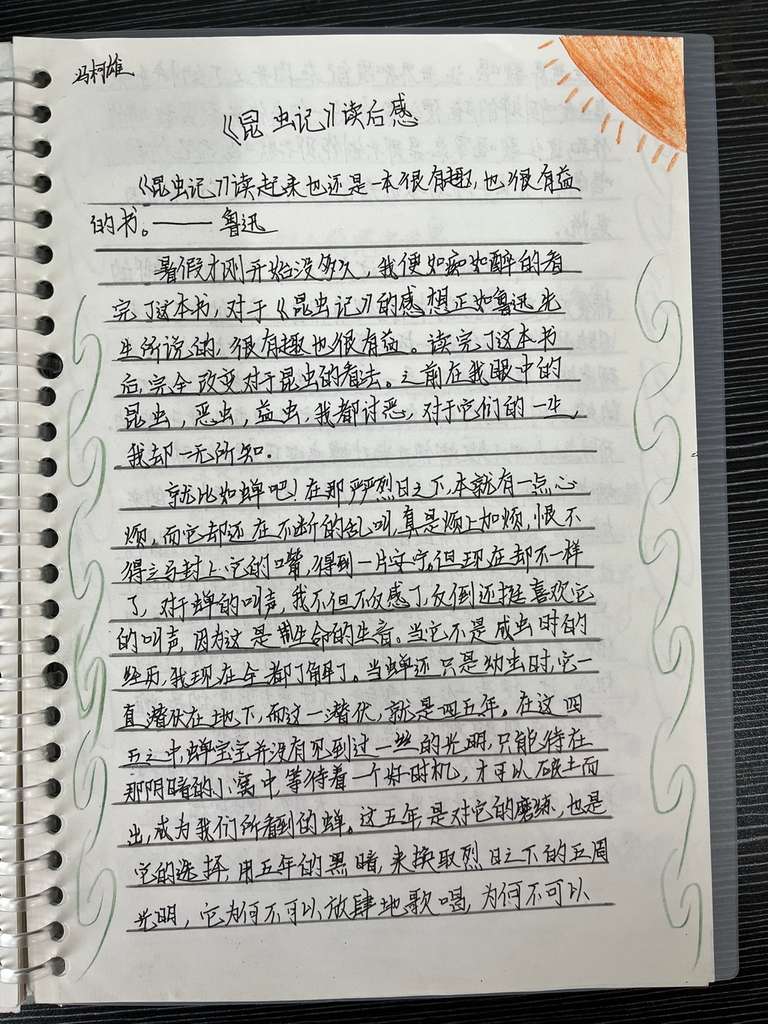 冯柯雄
《昆虫记》读后感
《昆虫记》读起来也还是一本很有趣，也很有益
的书。——鲁迅
暑假才刚开始没多久，我便如痴如醉的看
完了这本书，对于《昆虫记》的感想正如鲁迅先
生所说的，很有趣也很有益。读完了这本书
后，完全改变对于昆虫的看法。之前在我眼中的
昆虫，恶虫，益虫，我都讨恶，对于它们的一生，
我却一无所知。
就比如蝉吧！在那严严烈日之下，本就有一点心
烦，而它却还在不断的乱叫，真是烦上加烦，恨不
得立马封上它的嘴，得到一片安宁。但现在却不一样
了，对于蝉的叫声，我不但不反感了，反倒还挺喜欢它
的叫声，因为这是带生命的生音。当它不是成虫时的
经历，我现在全都了解了。当蝉还只是幼虫时，它一
直潜伏在地下，而这一潜伏，就是四五年。在这四
五之中，蝉宝宝并没有见到过一丝的光明，只能待在
那阴暗的小窝中，等待着一个好时机，才可以破土而
出，成为我们所看到的蝉。这五年是对它的磨练，也是
它的选择，用五年的黑暗，来换取烈日之下的五周
光明，它为何不可以放肆地歌唱，为何不可以